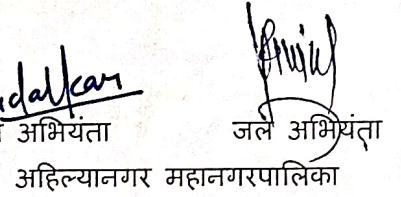 अभियंता जल अभियंता
अहिल्यानगर महानगरपालिका